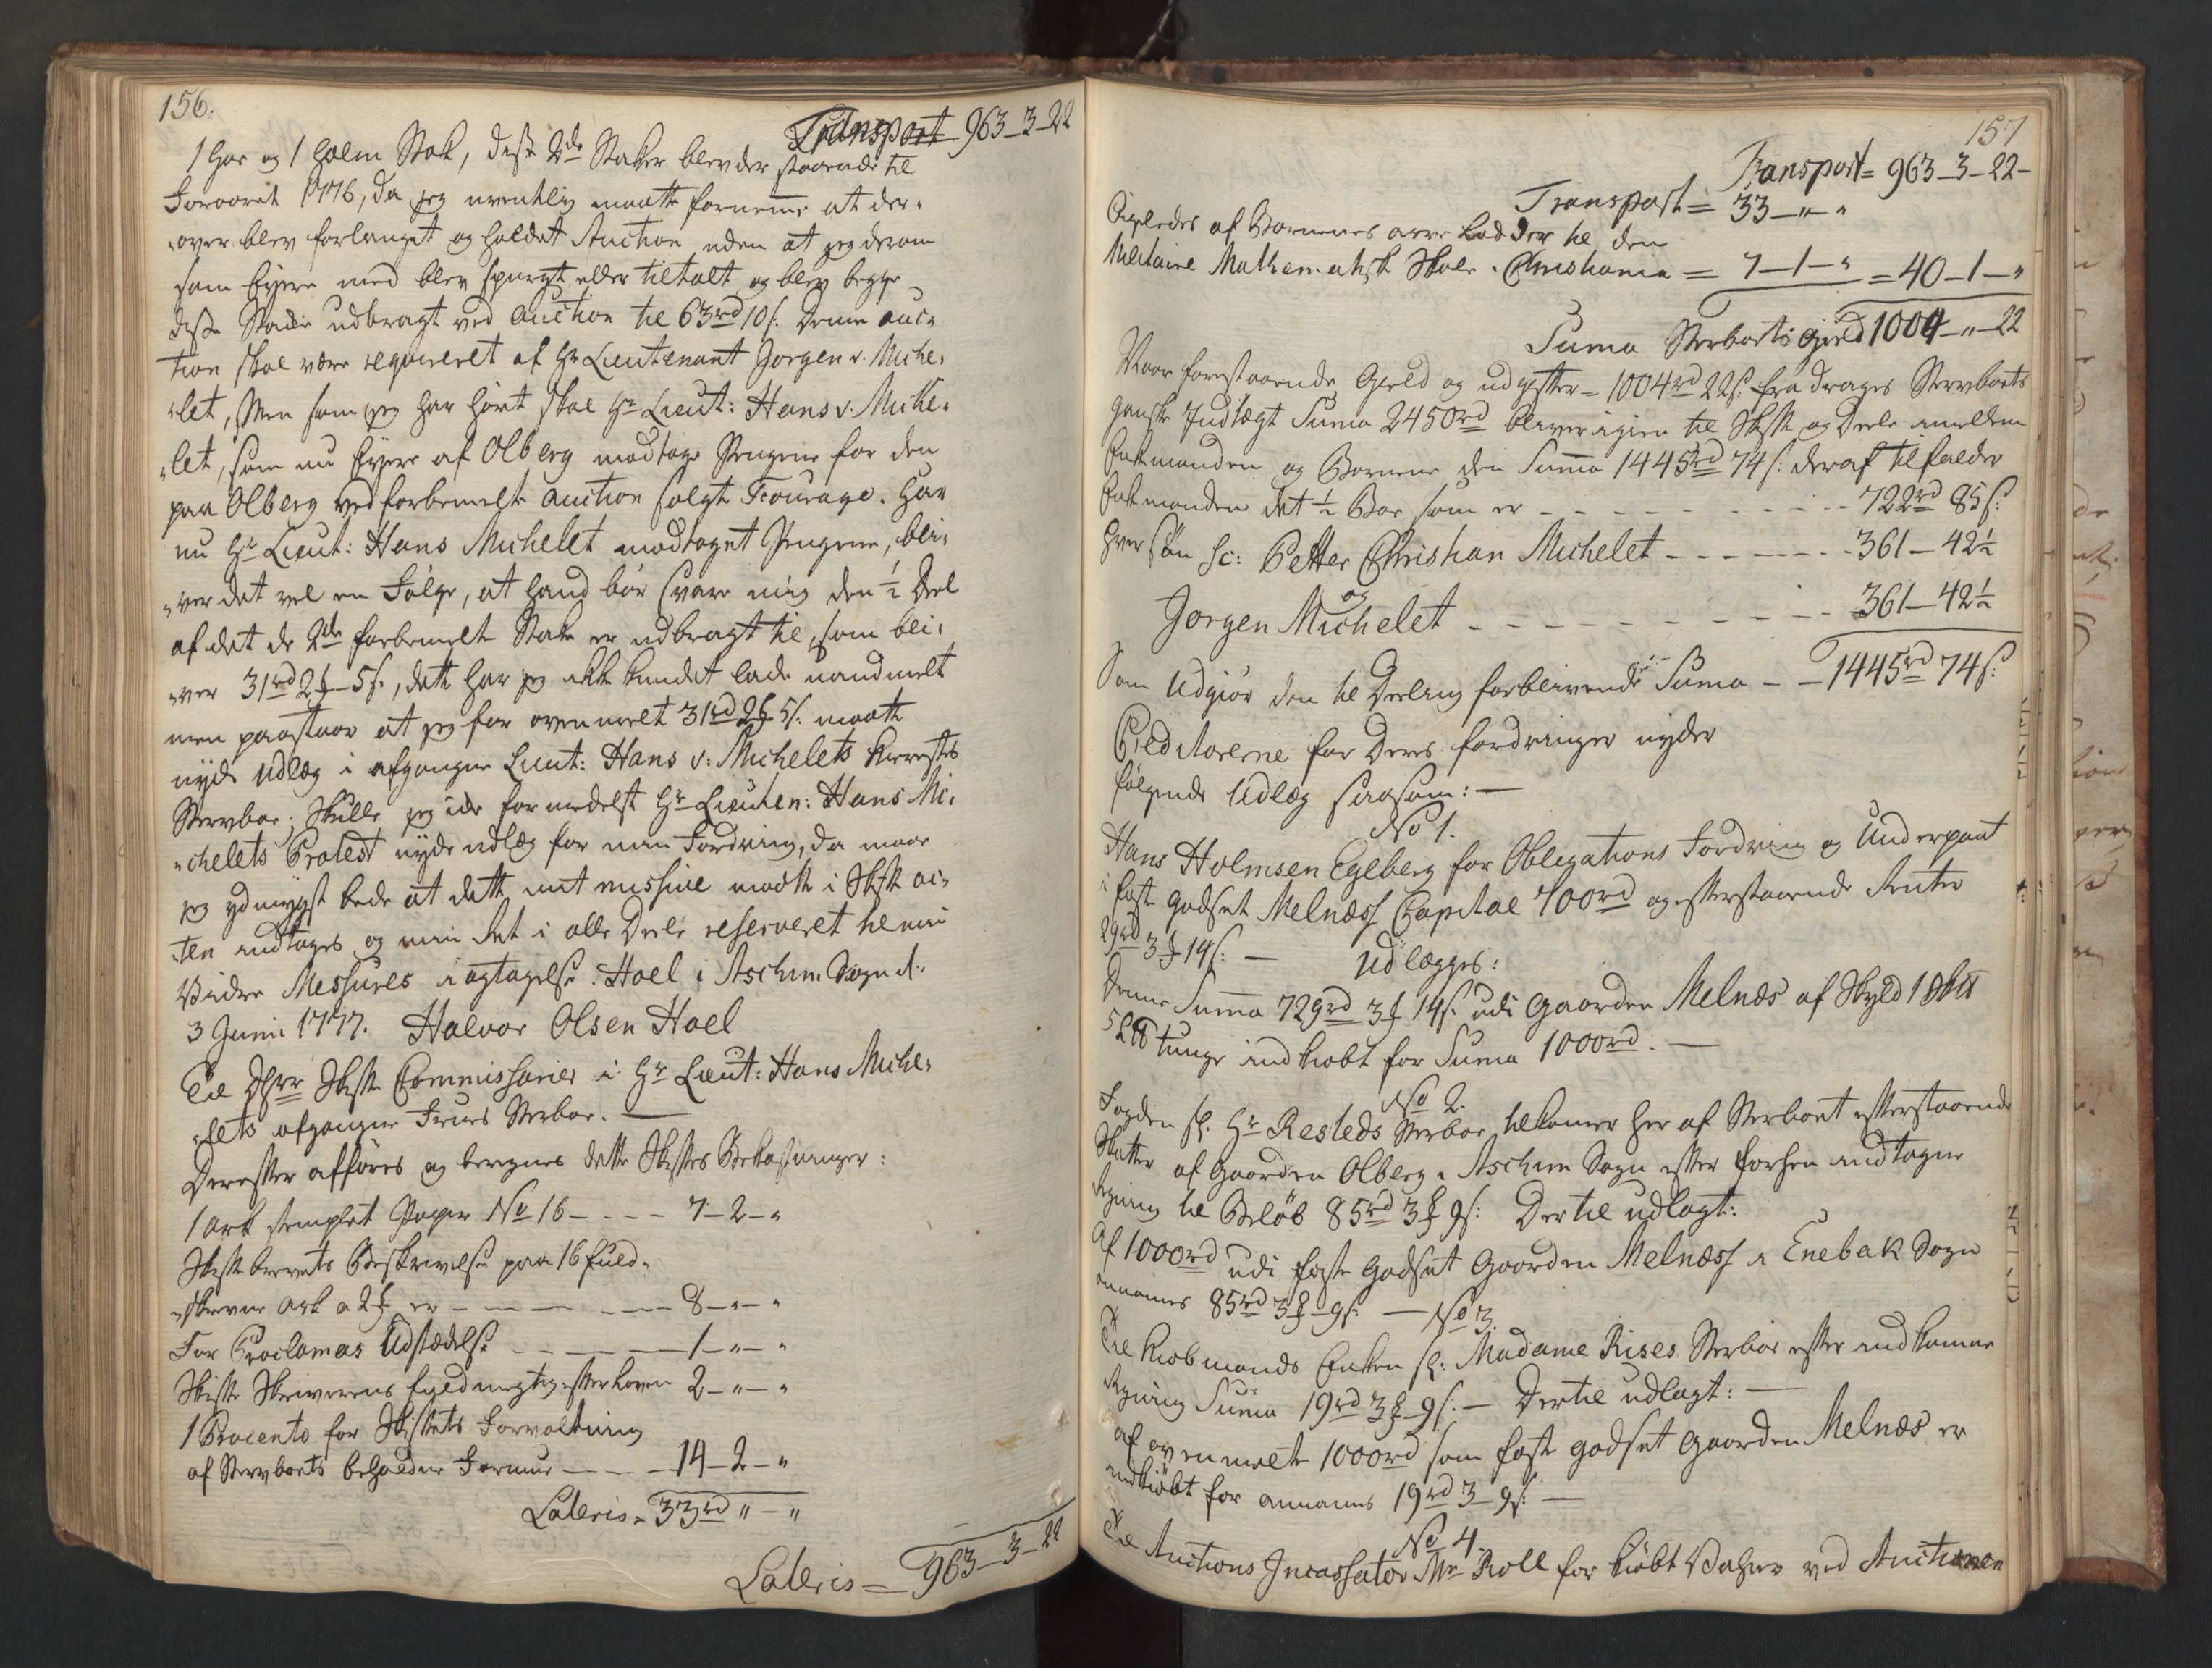 156.
Transport 963-3-22
1 Hør og 1 Halm Stak, disse 2de Staker blev der staaende til
Foraaret 1776, da jeg uventelig maatte fornemme at der-
over blev forlanget og holdet Auction uden at jeg derom
som Eyere med blev spurgt eller tiltalt og blev begge
disse Stake udbragt ved Auction til 63rd 10s. Denne Auc-
tion skal være reqvireret af Hr Lieutenant Jørgen v. Miche-
let, Men som jeg har hørt skal Hr Lieut: Hans v. Miche-
let, som nu Eyere af Olberg modtage Pengene for den
paa Olberg ved forbemelte Auction solgt Fourage. Har
nu Hr Lieut: Hans Michelet modtaget Pengene, bli-
ver det vel en Følge, at hand bør svare mig den ½ Deel
af det de 2de forbemelte Stake er udbragt til, som bli-
ver 31rd 2ƒ-5s., dette har jeg ikke kundet lade uandmelt
men paastaar at jeg for ovenmelt 31rd 2ƒ 5s. maatte
nyde Udlæg i afgangne Lieut: Hans v: Michelets Kierestes
Stervboe; Skulle jeg icke formedelst Hr Lieuten: Hans Mi-
chelets Protest nyde udlæg for min Fordring, da maae
jeg ydmygst bede at dette mit missive maatte i Skifte ac-
ten indtages og min Ret i alle Deele reserveret til min
Videre Messures iagtagelse. Hoel i Aschim Sogn d:
3 Junii 1777. Halvor Olsen Hoel
Til DHrr Skifte Commissarier i Hr Lieut: Hans Miche-
lets afgangne Frues Sterboe. —
Derefter afføres og beregnes dette Skiftes Bekostninger:
1 Ark stemplet Papir No 16 - - - - 7-2-"
Skiftebrevets Beskrivelse paa 16 fuld-
skrevne Ark a 2ƒ er - - - - - - 8-"-"
For Proclamas Udstædelse - - - - - 1-"-"
Skifte Skriverens fuldmægtig efter Loven 2-"-"
1 Procento for Skiftets Forvaltning
af Stervboets beholdne Formue - - - 14-2-"
Lateris = 33rd "-"
Lateris = 963-3-22
157
Transport = 963-3-22-
Transport = 33-"-"
Ligeledes af Børnenes arve Lodder til den
Militaire Mathematiske Skole i Christiania = 7-1-" = 40-1-"
Suma Sterboets Gield 1004-"-22
Naar forestaaende Gield og udgifter - 1004rd 22s. fradrages Stervboets
ganske Indtægt Suma 2450rd bliver igien til Skifte og Deele imellem
Enkemanden og Børnene den Summa 1445rd 74s: deraf tilfalder
Enkemanden det ½ Boe som er - - - - - - - 722rd 85s:
Hver Søn sc: Petter Christian Michelet - - - - - - 361-42½
og
Jørgen Michelet - - - - - - - - - - - 361-42½
Som Udgiør den til Deeling forblivende Suma - - 1445rd 74s:
Creditorerne for Deres fordringer nyder
følgende Udlæg saasom: —
No 1.
Hans Holmsen Egeberg for Obligations Fordring og Underpant
i faste Godset Melness Capital 700rd og efterstaaende Renter
29rd 3ƒ 14s. — Udlægges:
Denne Summa 729rd 3ƒ 14s. udi Gaarden Melnæs af Skyld 1 Sk℔
5 L℔ tunge indkiøbt for Suma 1000rd. —
No 2.
Fogden sl. Hr Resteds Sterboe tilkommer her af Sterboet efterstaaende
Skatter af Gaarden Olberg i Aschim Sogn efter forhen indtagne
Regning til Beløb 85rd 3ƒ 9s: Dertil udlagt:
Af 1000rd udi faste Godset Gaarden Melness i Enebak Sogn
annames 85rd 3ƒ-9s. —
No 3.
Til Kiøbmands Enken sl: Madame Rises Sterboe efter indkomne
Regning Suma 19rd 3ƒ-9s. — Dertil udlagt: —
af ovenmelte 1000rd som faste Godset Gaarden Melnæs er
indkiøbt for annames 19rd 3-9s. —
No 4.
Til Auctions Incassator Mr Roll for kiøbt Vahrer ved Auctionen